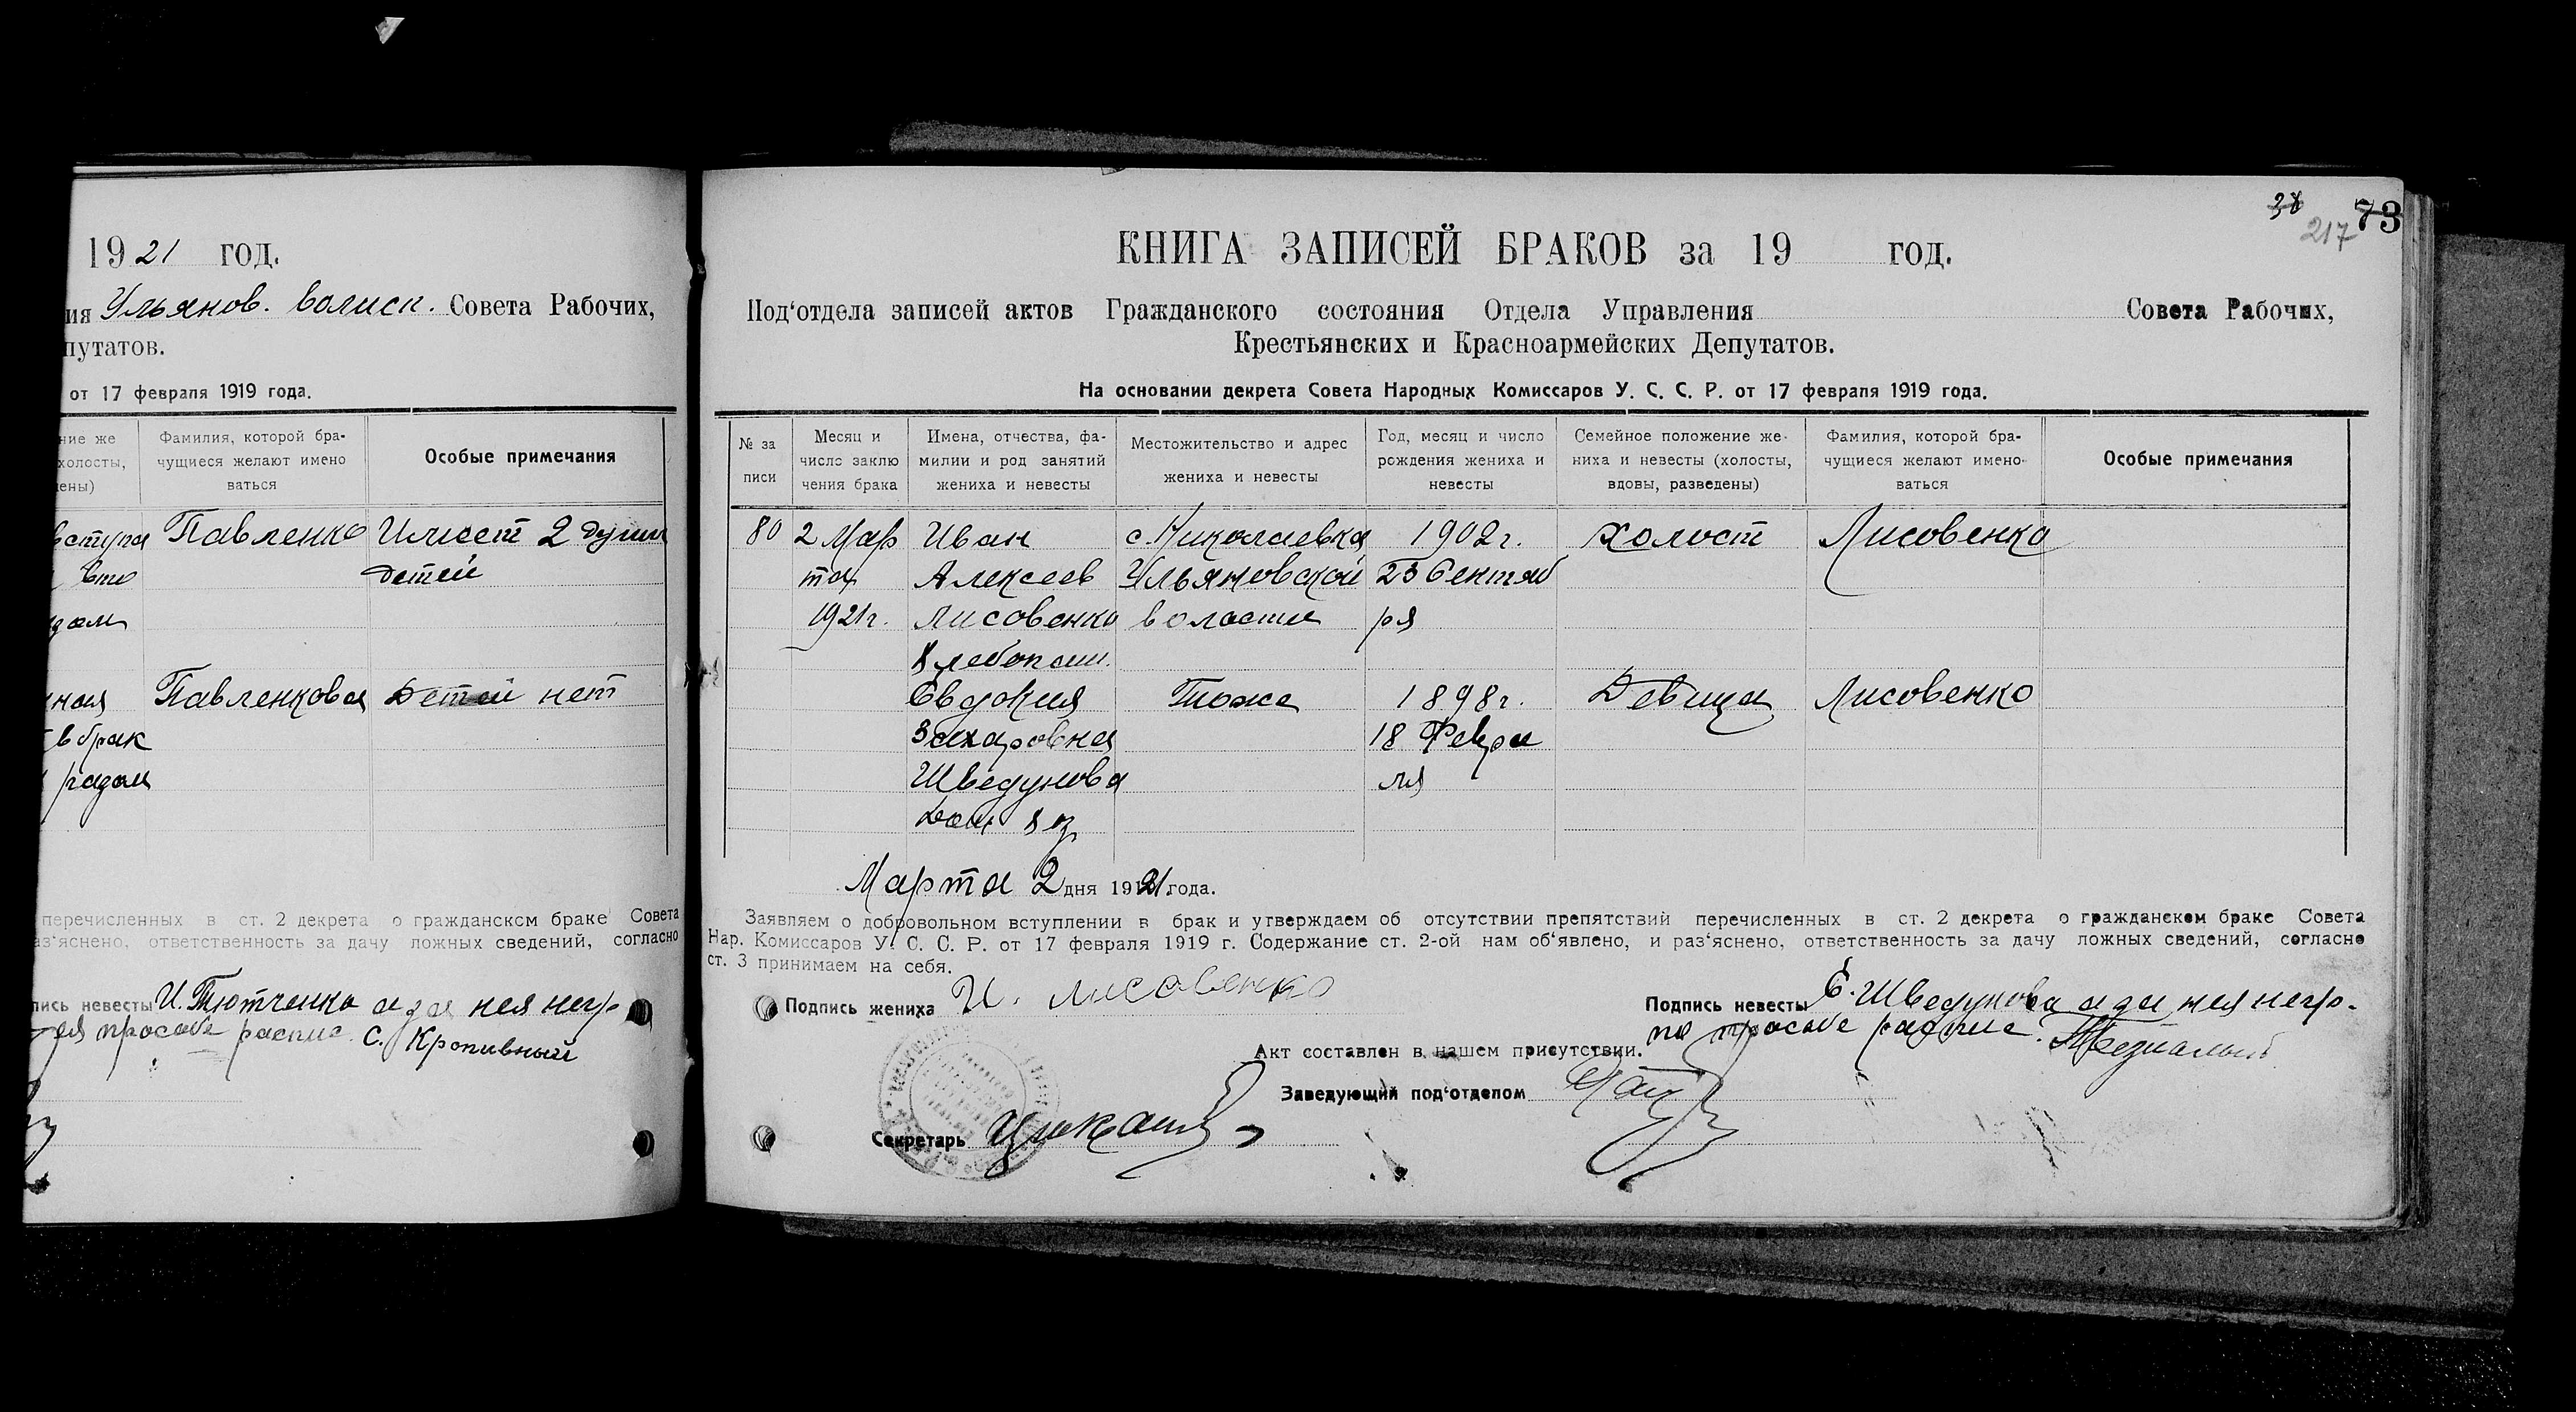 1921 год.
ия Ульянов. волисп. Совета Рабочих,
путатов.
от 17 февраля 1919 года.
ние же
холосты,
ены)
Фамилия, которой бра-
чущиеся желают имено
ваться
Особые примечания
вступа Павленко Имеет 2 души
детей
ная Павленкова Детей нет
в брак
разом
перечисленных в ст. 2 декрета о гражданском браке Совета
аз'яснено, ответственность за дачу ложных сведений, согласно
пись невесты И. Тютченко а за нея негр.
ея просьбе распис. С. Кропивный
38
217 73
КНИГА ЗАПИСЕЙ БРАКОВ за 19 год.
Под'отдела записей актов Гражданского состояния Отдела Управления Совета Рабочих,
Крестьянских и Красноармейских Депутатов.
На основании декрета Совета Народных Комиссаров У. С. С. Р. от 17 февраля 1919 года.
№ за
писи
Месяц и
число заклю
чения брака
Имена, отчества, фа-
милии и род занятий
жениха и невесты
Местожительство и адрес
жениха и невесты
Год, месяц и число
рождения жениха и
невесты
Семейное положение же-
ниха и невесты (холосты,
вдовы, разведены)
Фамилия, которой бра-
чущиеся желают имено-
ваться
Особые примечания
80 2 Мар Иван с. Николаевка 1902 г. холост Лисовенко
та Алексеев Ульяновской 23 Сентяб
1921 г. Лисовенко воласти ря
Хлебопаш.
Евдокия Тоже 1898 г. Девица Лисовенко
Захаровна 18 Февра
Шведунова ля
Дом хоз
Марта 2 дня 1921 года.
Заявляем о добровольном вступлении в брак и утверждаем об отсутствии препятствий перечисленных в ст. 2 декрета о гражданском браке Совета
Нар. Комиссаров У. С. С. Р. от 17 февраля 1919 г. Содержание ст. 2-ой нам об'явлено, и раз'яснено, ответственность за дачу ложных сведений, согласно
ст. 3 принимаем на себя.
Подпись жениха И. Лисовенко
Подпись невесты Е. Шведунова а за нея негр.
по просьбе распис.
Акт составлен в нашем присутствии.
Заведующий под'отделом
Секретарь